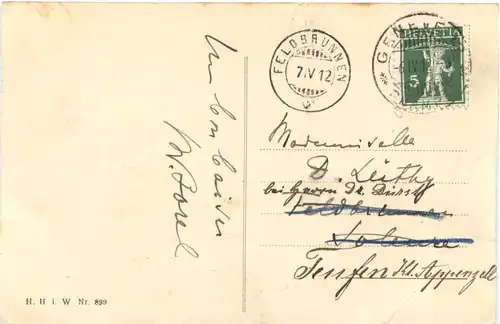 Un bon baiser
FELDBRUNNEN
7.V.12
GENÈVE
HELVETIA
5
Mademoiselle
D. Lüthy
bei Herrn Dr. Dürst
Feldbrunnen
Soleure
Teufen Kt. Appenzell
H. H i. W Nr. 899